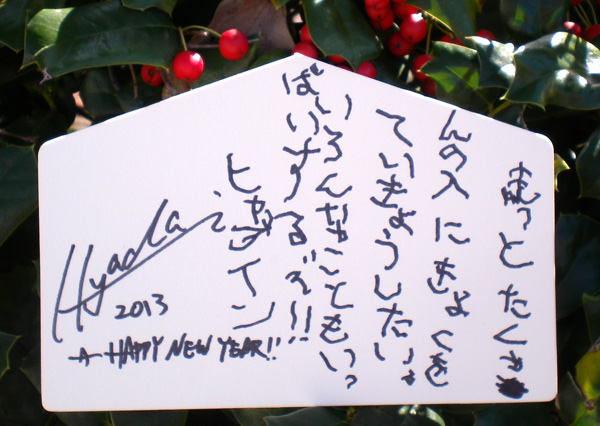 もっとたくさ
んの人にきょくを
ていきょうしたいッ
いろんなこともいっ
ぱいするぞ!!
ヒャダイン
Hyada
2013
A HAPPY NEW YEAR!!